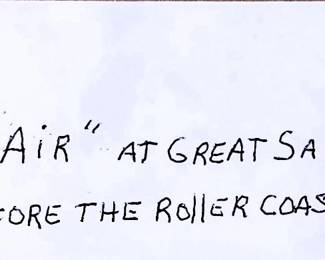 Air" AT GREAT SA
FORE THE ROllER COAS